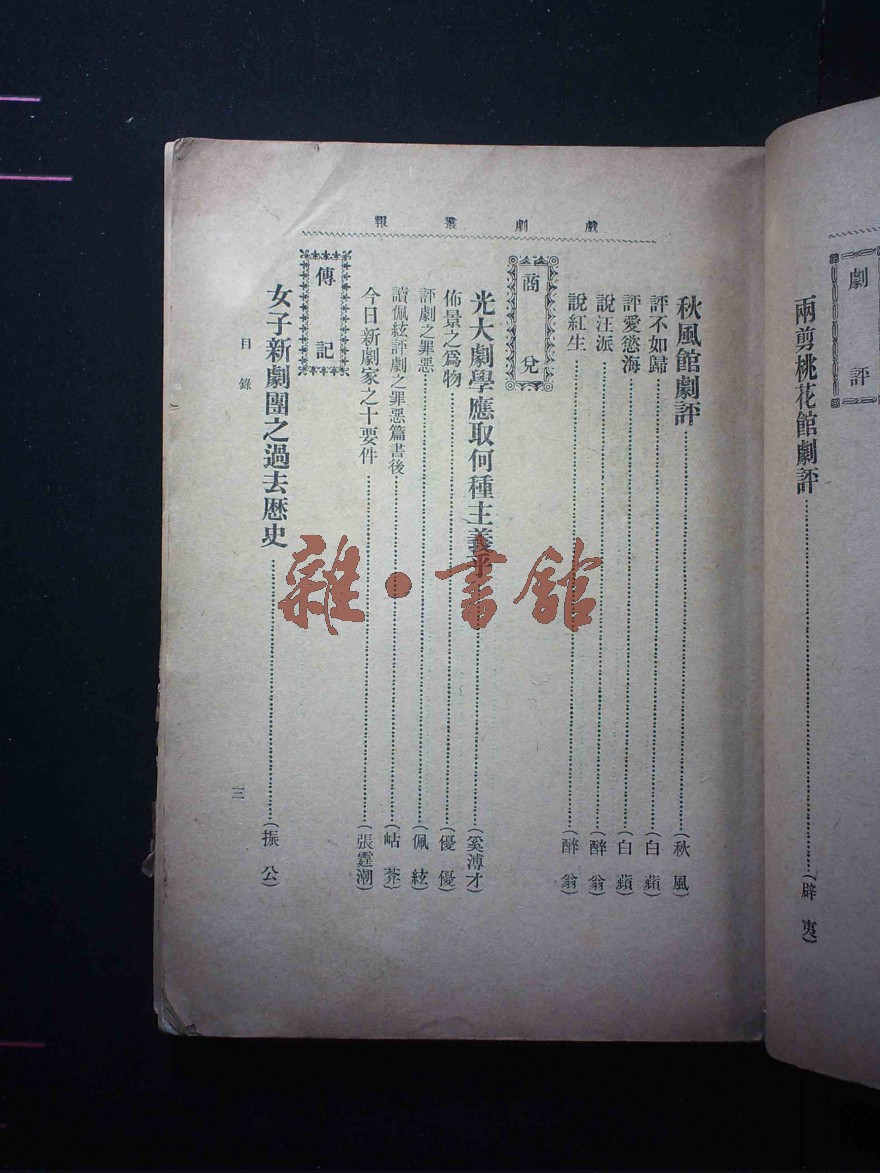 劇評
兩剪桃花館劇評……(辟夷)
戲劇叢報
秋風館劇評……(秋風)
評不如歸……(白蘋)
評愛慾海……(白蘋)
說汪派……(醉翁)
說紅生……(醉翁)
商兌
光大劇學應取何種主義乎……(奚溥才)
佈景之爲物……(優優)
評劇之罪惡……(佩絃)
讀佩絃評劇之罪惡篇書後……(岵萘)
今日新劇家之十要件……(張霆潮)
傳記
女子新劇團之過去歷史……(振公)
目錄
三
雜·書館